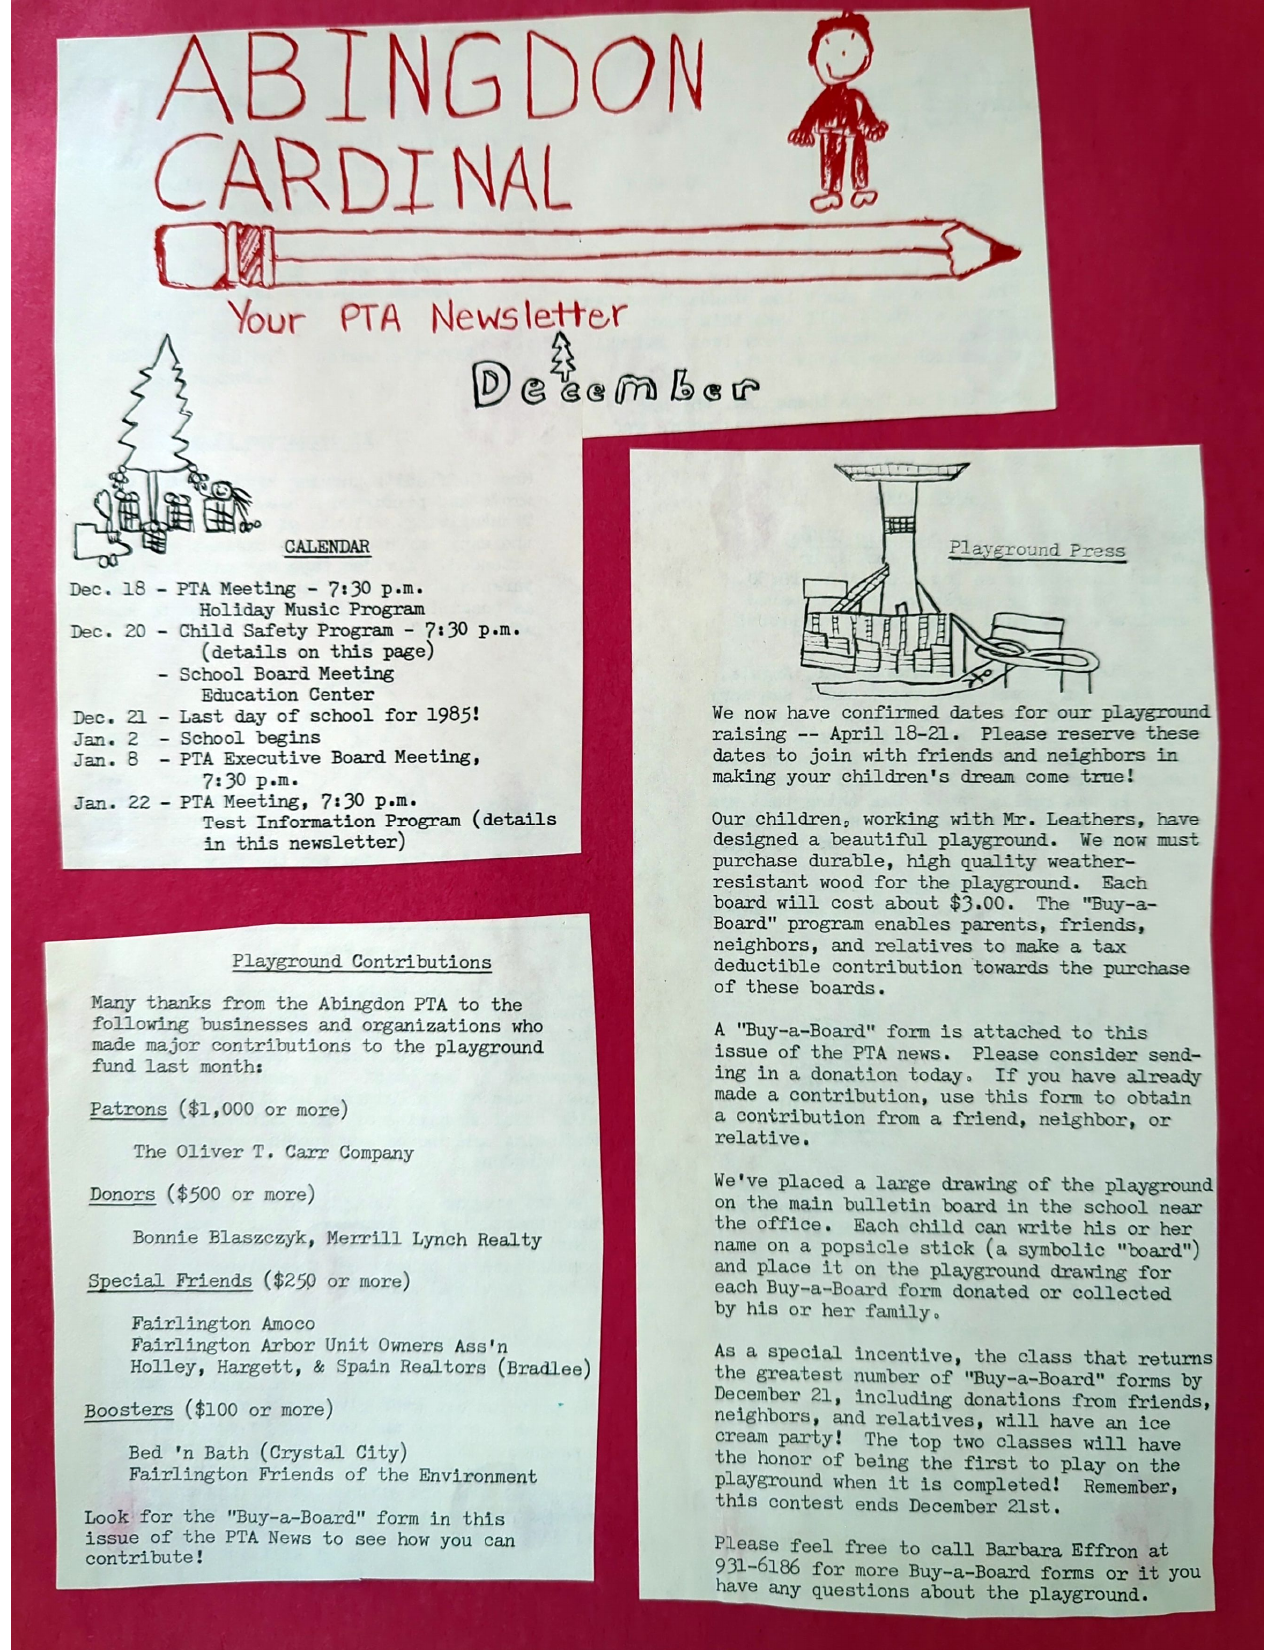 ABINGDON
CARDINAL
Your PTA Newsletter
December
CALENDAR
Dec. 18 - PTA Meeting - 7:30 p.m.
Holiday Music Program
Dec. 20 - Child Safety Program - 7:30 p.m.
(details on this page)
- School Board Meeting
Education Center
Dec. 21 - Last day of school for 1985!
Jan. 2 - School begins
Jan. 8 - PTA Executive Board Meeting,
7:30 p.m.
Jan. 22 - PTA Meeting, 7:30 p.m.
Test Information Program (details
in this newsletter)
Playground Contributions
Many thanks from the Abingdon PTA to the
following businesses and organizations who
made major contributions to the playground
fund last month:
Patrons ($1,000 or more)
The Oliver T. Carr Company
Donors ($500 or more)
Bonnie Blaszczyk, Merrill Lynch Realty
Special Friends ($250 or more)
Fairlington Amoco
Fairlington Arbor Unit Owners Ass'n
Holley, Hargett, & Spain Realtors (Bradlee)
Boosters ($100 or more)
Bed 'n Bath (Crystal City)
Fairlington Friends of the Environment
Look for the "Buy-a-Board" form in this
issue of the PTA News to see how you can
contribute!
Playground Press
We now have confirmed dates for our playground
raising -- April 18-21. Please reserve these
dates to join with friends and neighbors in
making your children's dream come true!
Our children, working with Mr. Leathers, have
designed a beautiful playground. We now must
purchase durable, high quality weather-
resistant wood for the playground. Each
board will cost about $3.00. The "Buy-a-
Board" program enables parents, friends,
neighbors, and relatives to make a tax
deductible contribution towards the purchase
of these boards.
A "Buy-a-Board" form is attached to this
issue of the PTA news. Please consider send-
ing in a donation today. If you have already
made a contribution, use this form to obtain
a contribution from a friend, neighbor, or
relative.
We've placed a large drawing of the playground
on the main bulletin board in the school near
the office. Each child can write his or her
name on a popsicle stick (a symbolic "board")
and place it on the playground drawing for
each Buy-a-Board form donated or collected
by his or her family.
As a special incentive, the class that returns
the greatest number of "Buy-a-Board" forms by
December 21, including donations from friends,
neighbors, and relatives, will have an ice
cream party! The top two classes will have
the honor of being the first to play on the
playground when it is completed! Remember,
this contest ends December 21st.
Please feel free to call Barbara Effron at
931-6186 for more Buy-a-Board forms or it you
have any questions about the playground.